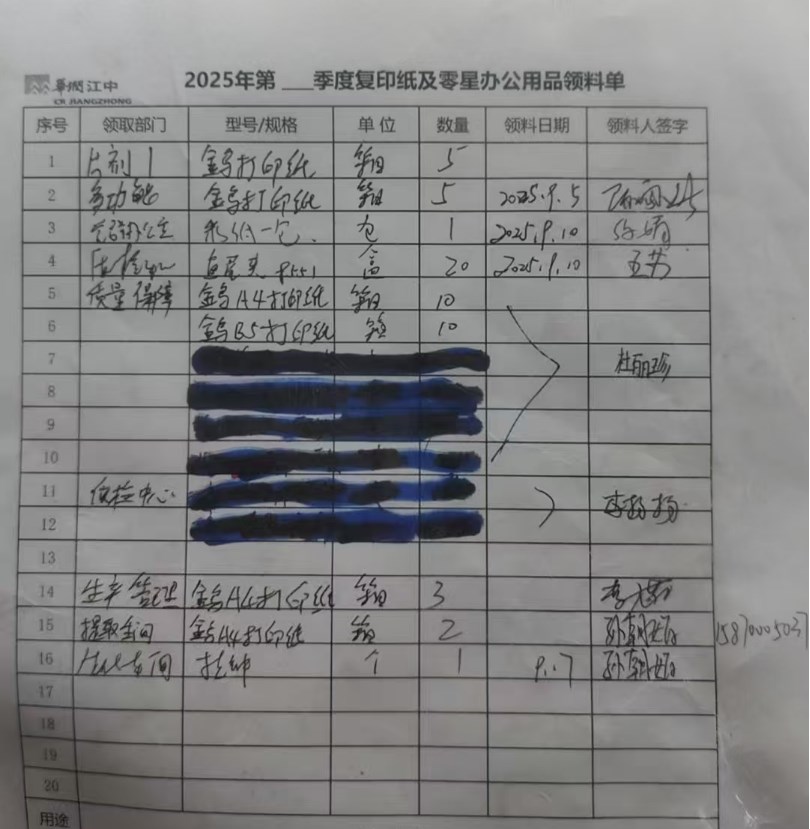 華潤江中
CR JIANGZHONG
2025年第 ___季度复印纸及零星办公用品领料单
序号 领取部门 型号/规格 单 位 数量 领料日期 领料人签字
1 片剂1 金鸟打印纸 箱 5
2 多功能 金鸟打印纸 箱 5 2025.9.5
3 包 1 2025.9.10
4 盒 20 2025.9.10
5 质量保障 金鸟A4打印纸 箱 10
6 金鸟B5打印纸 箱 10
7 杜丽珍
8
9
10
11 质检中心 李杨杨
12
13
14 生产管理 金鸟A4打印纸 箱 3
15 提取车间 金鸟A4打印纸 箱 2 孙朝阳
16 挂钟 个 1 9.17 孙朝阳
17
18
19
20
用途